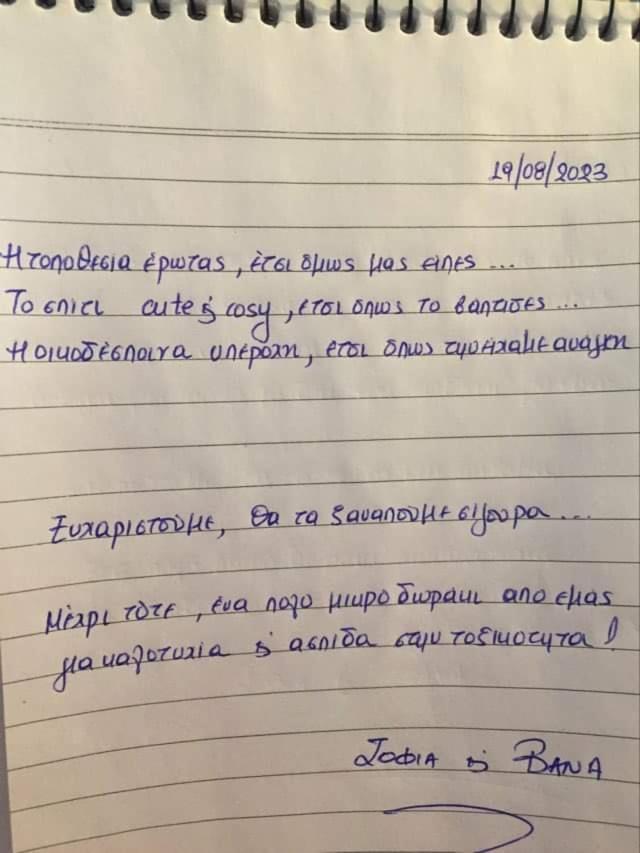 19/08/2023
Η τοποθεσία έρωτας, έτσι όμως μας είπες...
Το σπίτι cute & cosy, έτσι όπως το βάπτισες...
Η οικοδέσποινα υπέροχη, έτσι όπως την είχαμε ανάγκη
Ευχαριστούμε, θα τα ξαναπούμε σίγουρα...
Μέχρι τότε, ένα πολύ μικρό δωράκι από εμάς
για καλοτυχία & ασπίδα στην τοξικότητα!
Σοφία & Βάνα